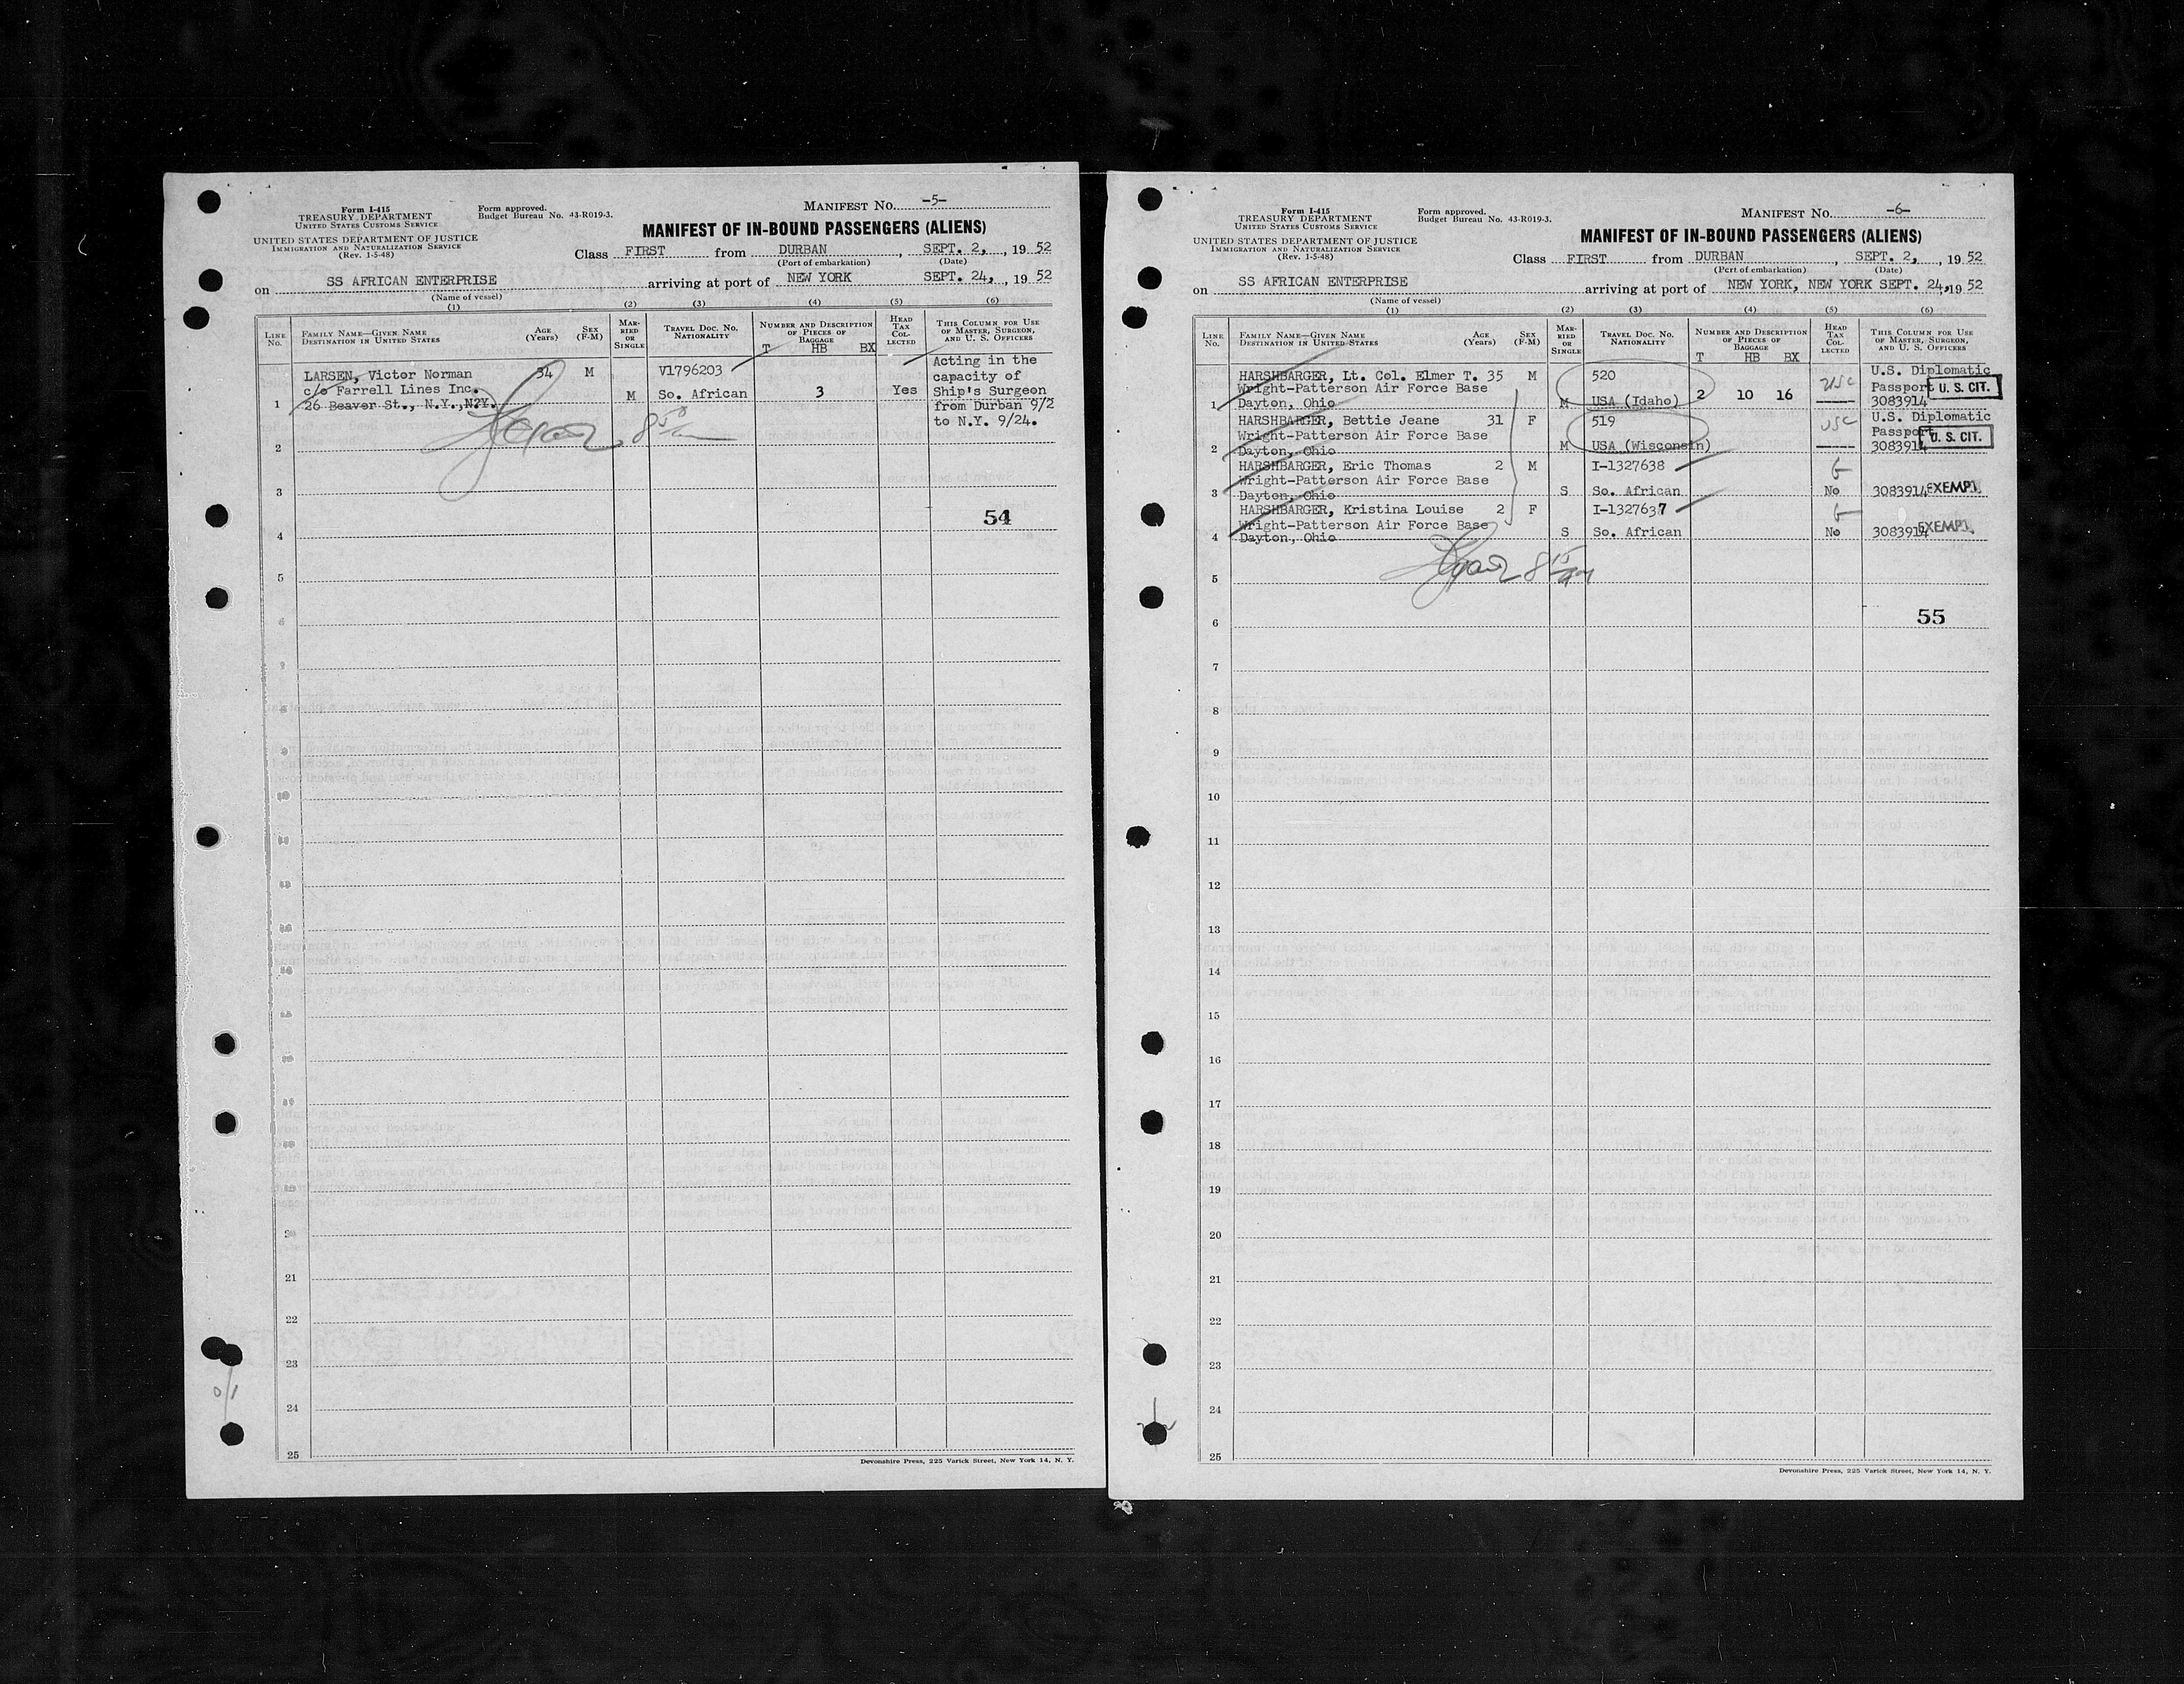 Form I-415
TREASURY DEPARTMENT
UNITED STATES CUSTOMS SERVICE
UNITED STATES DEPARTMENT OF JUSTICE
IMMIGRATION AND NATURALIZATION SERVICE
(Rev. 1-5-48)
Form approved.
Budget Bureau No. 43-R019-3.
MANIFEST No. -5-
MANIFEST OF IN-BOUND PASSENGERS (ALIENS)
Class FIRST from DURBAN, SEPT. 2, , 19 52
(Port of embarkation) (Date)
on SS AFRICAN ENTERPRISE arriving at port of NEW YORK SEPT. 24, , 19 52
(Name of vessel)
(1) (2) (3) (4) (5) (6)
LINE No. FAMILY NAME—GIVEN NAME DESTINATION IN UNITED STATES AGE (Years) SEX (F-M) MARRIED OR SINGLE TRAVEL DOC. NO. NATIONALITY NUMBER AND DESCRIPTION OF PIECES OF BAGGAGE HEAD TAX COLLECTED THIS COLUMN FOR USE OF MASTER, SURGEON, AND U. S. OFFICERS
T HB BX
LARSEN, Victor Norman 34 M V1796203 Acting in the
c/o Farrell Lines Inc. M So. African 3 Yes capacity of
1 26 Beaver St., N.Y.,N2Y. Ship's Surgeon
from Durban 9/2
to N.Y. 9/24.
2
3
54
4
5
6
7
8
9
10
11
12
13
14
15
16
17
18
19
20
21
22
23
24
25
Devonshire Press, 225 Varick Street, New York 14, N. Y.
Form I-415
TREASURY DEPARTMENT
UNITED STATES CUSTOMS SERVICE
UNITED STATES DEPARTMENT OF JUSTICE
IMMIGRATION AND NATURALIZATION SERVICE
(Rev. 1-5-48)
Form approved.
Budget Bureau No. 43-R019-3.
MANIFEST No. -6-
MANIFEST OF IN-BOUND PASSENGERS (ALIENS)
Class FIRST from DURBAN , SEPT. 2, , 19 52
(Port of embarkation) (Date)
on SS AFRICAN ENTERPRISE arriving at port of NEW YORK, NEW YORK SEPT. 24, 19 52
(Name of vessel)
(1) (2) (3) (4) (5) (6)
LINE No. FAMILY NAME—GIVEN NAME DESTINATION IN UNITED STATES AGE (Years) SEX (F-M) MARRIED OR SINGLE TRAVEL DOC. NO. NATIONALITY NUMBER AND DESCRIPTION OF PIECES OF BAGGAGE HEAD TAX COLLECTED THIS COLUMN FOR USE OF MASTER, SURGEON, AND U. S. OFFICERS
T HB BX
HARSHBARGER, Lt. Col. Elmer T. 35 M 520 U.S. Diplomatic
Wright-Patterson Air Force Base 2 10 16 USC Passport U. S. CIT.
1 Dayton, Ohio M USA (Idaho) 3083914
HARSHBARGER, Bettie Jeane 31 F 519 USC U.S. Diplomatic
Wright-Patterson Air Force Base Passport U. S. CIT.
2 Dayton, Ohio M USA (Wisconsin) 3083914
HARSHBARGER, Eric Thomas 2 M I-1327638
Wright-Patterson Air Force Base
3 Dayton, Ohio S So. African No 3083914 EXEMPT.
HARSHBARGER, Kristina Louise 2 F I-1327637
Wright-Patterson Air Force Base
4 Dayton, Ohio S So. African No 3083914 EXEMPT.
5
6 55
7
8
9
10
11
12
13
14
15
16
17
18
19
20
21
22
23
24
25
Devonshire Press, 225 Varick Street, New York 14, N. Y.